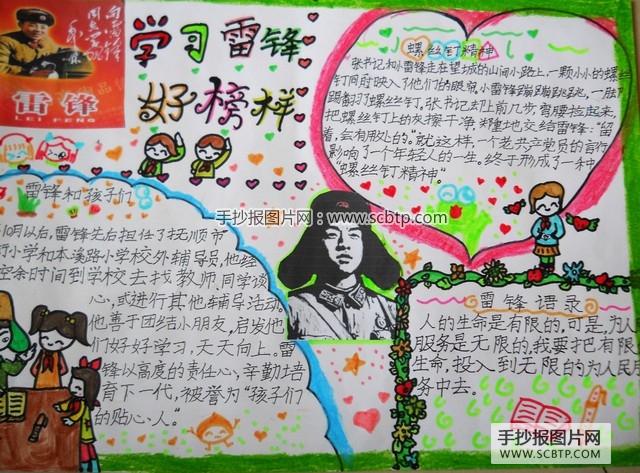 向雷锋
同志学习
毛泽东
雷锋
LEI FENG
学习雷锋
好榜样
螺丝钉精神
张书记和小雷锋走在望城的山间小路上,一颗小小的螺丝
钉同时映入了他们的眼帘,小雷锋蹦蹦跳跳,一脚
踢翻了螺丝钉。张书记却上前几步弯腰捡起来,
把螺丝钉上的灰擦干净,郑重地交给雷锋:“留
着,会有用处的。”就这样,一个老共产党员的言行
影响了一个年轻人的一生。终于形成了一种
“螺丝钉精神”。
手抄报图片网:www.scbtp.com
雷锋和孩子们
10月以后,雷锋先后担任了抚顺市
小学和本溪路小学校外辅导员,他经
空余时间到学校去找教师、同学谈
心,或进行其他辅导活动。
他善于团结小朋友,启发他
们好好学习,天天向上。雷
锋以高度的责任心,辛勤培
育下一代,被誉为“孩子们
的贴心人。”
雷锋语录
人的生命是有限的,可是,为人
服务是无限的,我要把有限
生命,投入到无限的为人民
务中去。
手抄报图片网
WWW.SCBTP.COM